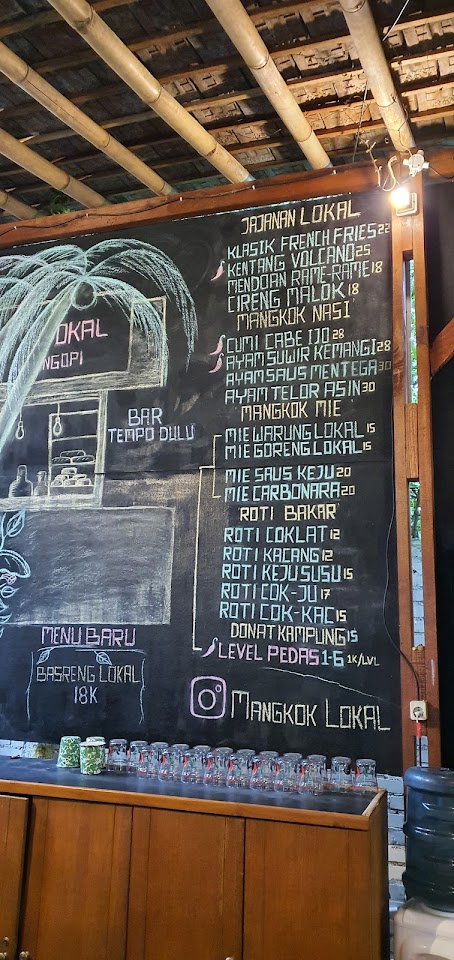 JAJANAN LOKAL
KLASIK FRENCH FRIES 22
KENTANG VOLCANO 25
MENDOAN RAME-RAME 18
CIRENG MALOK 18
MANGKOK NASI
CUMI CABE IJO 28
AYAM SUWIR KEMANGI 28
AYAM SAUS MENTEGA 30
AYAM TELOR ASIN 30
MANGKOK MIE
MIE WARUNG LOKAL 15
MIE GORENG LOKAL 15
MIE SAUS KEJU 20
MIE CARBONARA 20
ROTI BAKAR
ROTI COKLAT 12
ROTI KACANG 12
ROTI KEJU SUSU 15
ROTI COK-JU 17
ROTI COK-KAC 15
DONAT KAMPUNG 15
LEVEL PEDAS 1-6 1K/LVL
MANGKOK LOKAL
OKAL
NGOPI
BAR
TEMPO DULU
MENU BARU
BASRENG LOKAL
18K